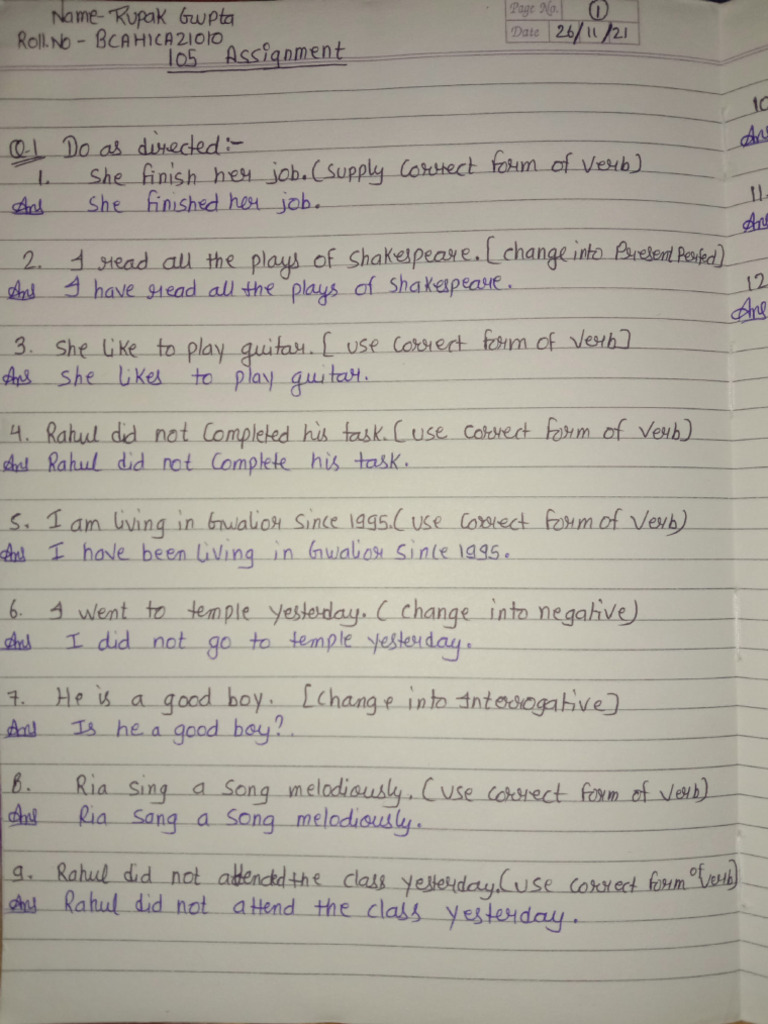 Name- Rupak Gupta
Page No. 1
Roll.No - BCAH1CA21010
Date 26/11/21
105 Assignment
Q.1 Do as directed:-
1. She finish her job. (Supply Correct form of Verb)
Ans She finished her job.
2. I read all the plays of Shakespeare. [change into Present Perfect)
Ans I have read all the plays of Shakespeare.
3. She like to play guitar. [Use Correct form of Verb]
Ans She likes to play guitar.
4. Rahul did not Completed his task. (Use Correct form of Verb)
Ans Rahul did not Complete his task.
5. I am living in Gwalior Since 1995. (Use Correct form of Verb)
Ans I have been living in Gwalior Since 1995.
6. I went to temple yesterday. (Change into negative)
Ans I did not go to temple yesterday.
7. He is a good boy. [Change into Interrogative]
Ans Is he a good boy?.
8. Ria Sing a Song melodiously. (Use correct form of Verb)
Ans Ria Sang a Song melodiously.
9. Rahul did not attended the class yesterday. (Use correct form of Verb)
Ans Rahul did not attend the class yesterday.
10
Ans
11.
Ans
12
Ans